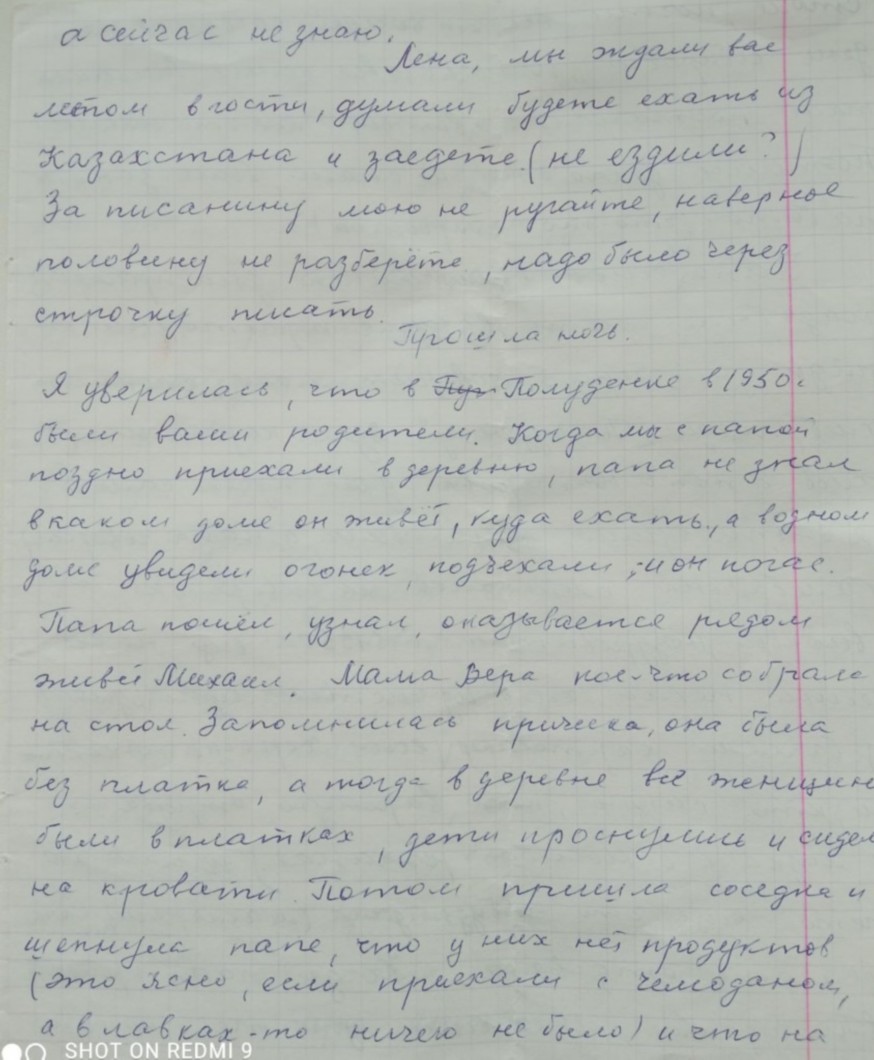 а сейчас не знаю.
Лена, мы ждали вас
летом в гости, думали будете ехать из
Казахстана и заедете. (не ездили?)
За писанину мою не ругайте, наверное
половину не разберёте, надо было через
строчку писать.
Прошла ночь.
Я уверилась, что в Полуденке в 1950г
были ваши родители. Когда мы с папой
поздно приехали в деревню, папа не знал
в каком доме он живёт, куда ехать, а в одном
доме увидели огонек, подъехали, и он погас.
Папа пошёл, узнал, оказывается рядом
живёт Михаил. Мама Вера кое-что собрала
на стол. Запомнилась прическа, она была
без платка, а тогда в деревне все женщин
были в платках, дети проснулись и сидел
на кровати. Потом пришла соседка и
шепнула папе, что у них нет продуктов
(это ясно, если приехали с чемоданом,
а в лавках-то ничего не было) и что на
SHOT ON REDMI 9